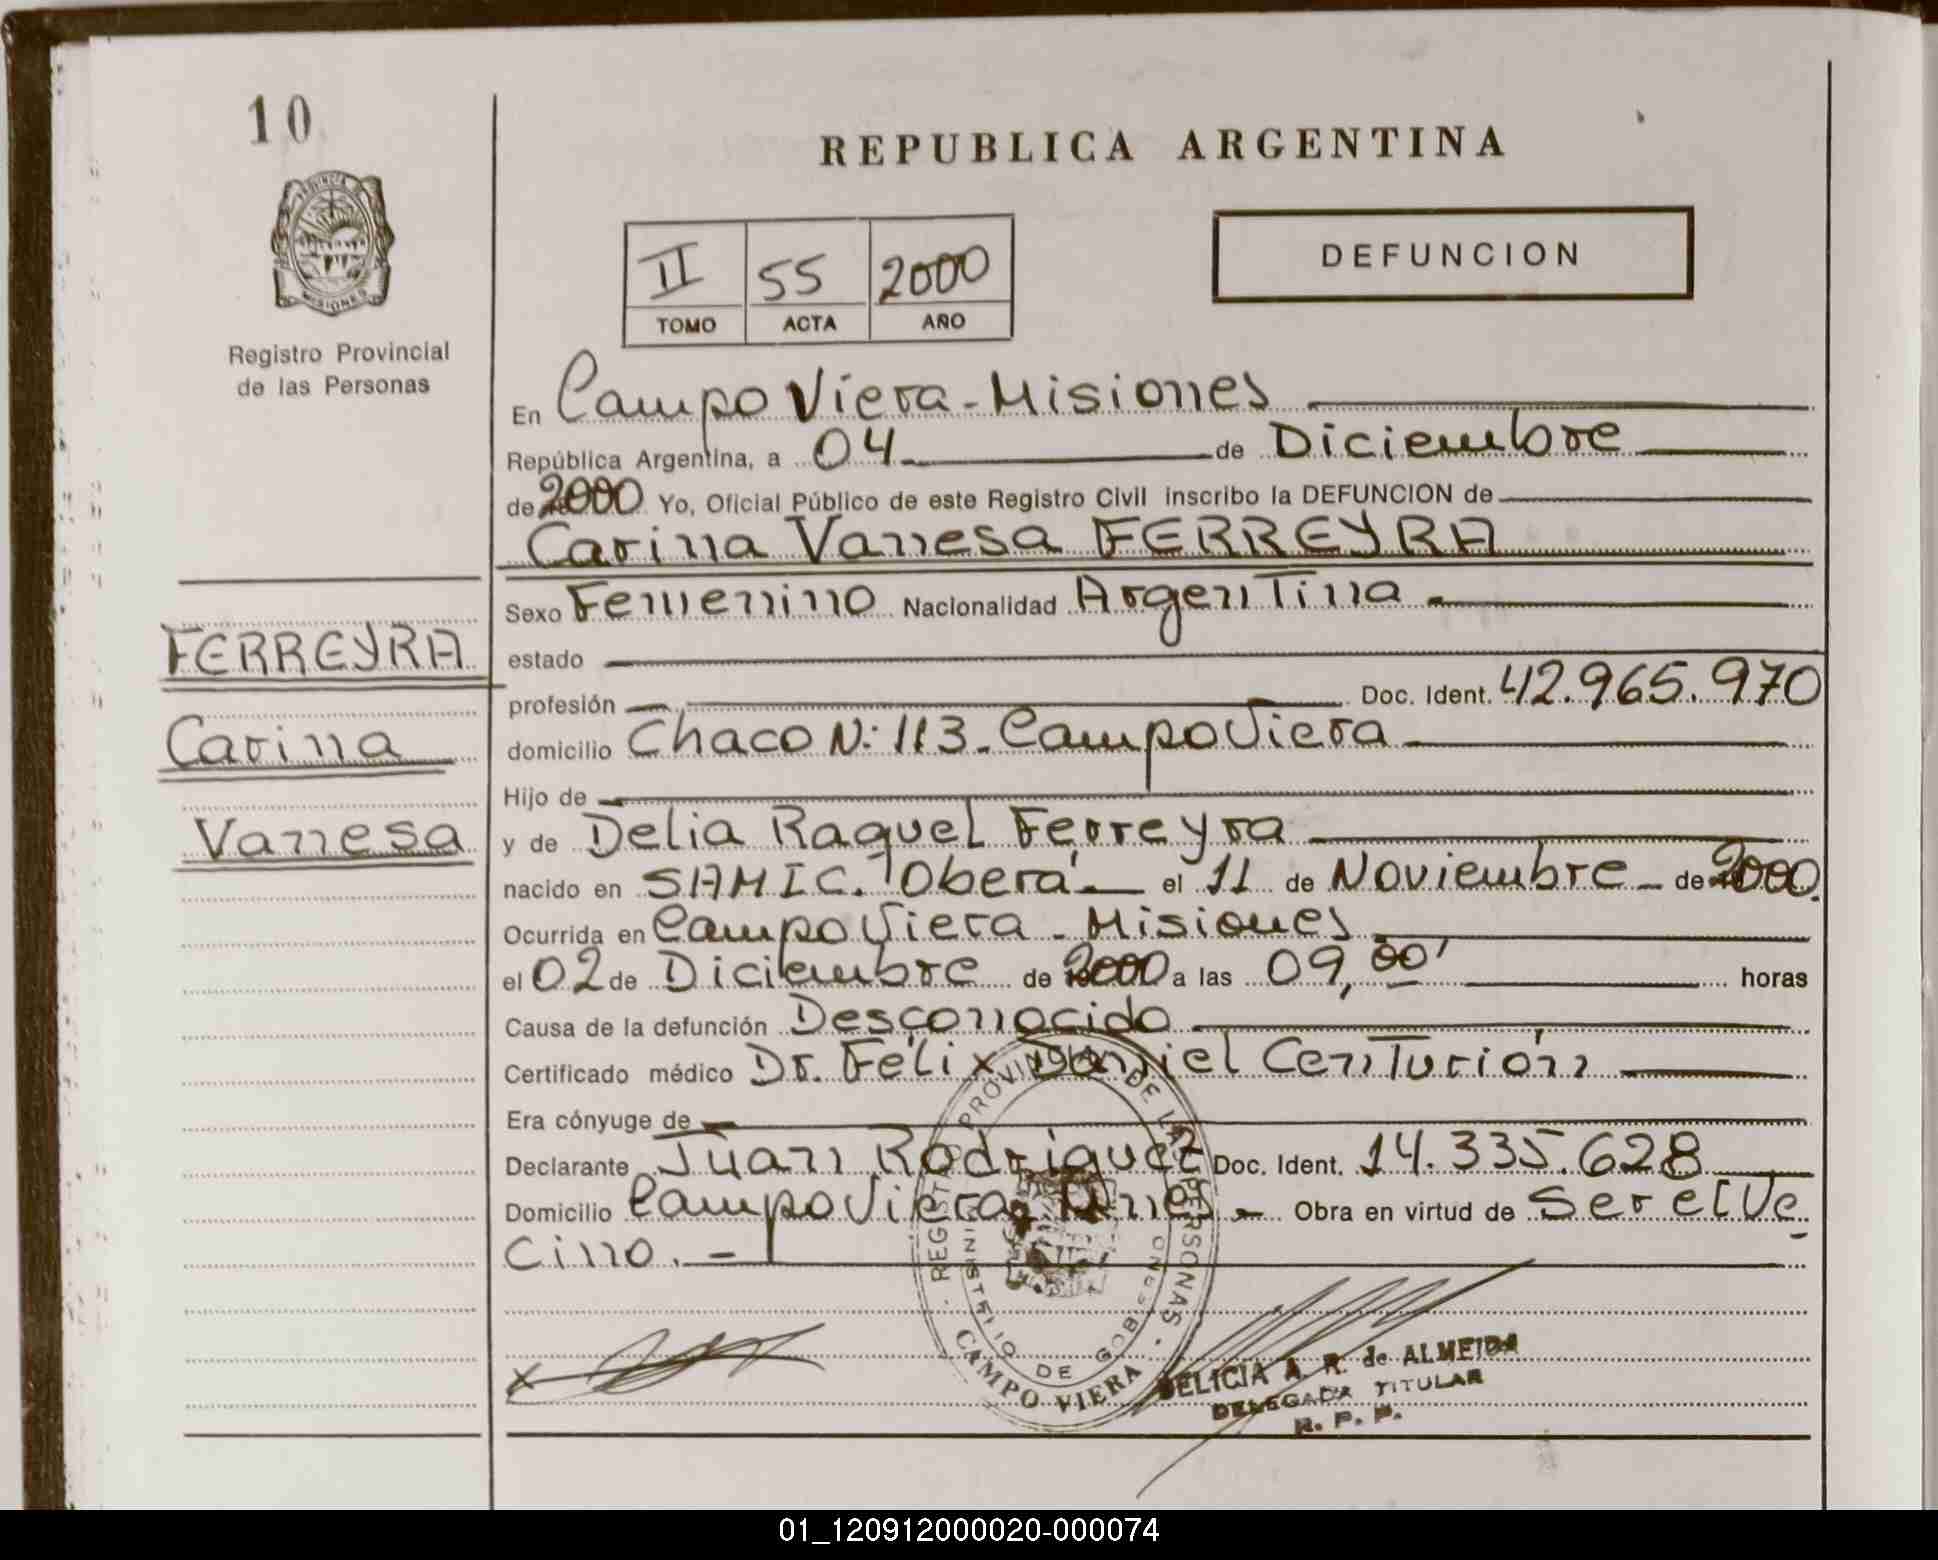 10
REPUBLICA ARGENTINA
PROVINCIA DE
MISIONES
Registro Provincial
de las Personas
II 55 2000
TOMO ACTA AÑO
DEFUNCION
En Campo Viera - Misiones
República Argentina, a 04 de Diciembre
de 2000 Yo, Oficial Público de este Registro Civil inscribo la DEFUNCION de
Carina Vanesa FERREYRA
Sexo Femenino Nacionalidad Argentina
FERREYRA
Carina
Vanesa
estado
profesión Doc. Ident. 42.965.970
domicilio Chaco N: 113 - Campo Viera
Hijo de
y de Delia Raquel Ferreyra
nacido en SAMIC. Oberá el 11 de Noviembre de 2000.
Ocurrida en Campo Viera - Misiones
el 02 de Diciembre de 2000 a las 09,00' horas
Causa de la defunción Desconocido
Certificado médico Dr. Félix Daniel Centurión
Era cónyuge de
Declarante Juan Rodriguez Doc. Ident. 14.335.628
Domicilio Campo Viera, Mnes - Obra en virtud de Ser el Ve
cino. -
REGISTRO PROVINCIAL DE LAS PERSONAS
MINISTERIO DE GOBIERNO
CAMPO VIERA
X
DELICIA A. R. de ALMEIDA
DELEGADA TITULAR
R. P. P.
01_120912000020-000074